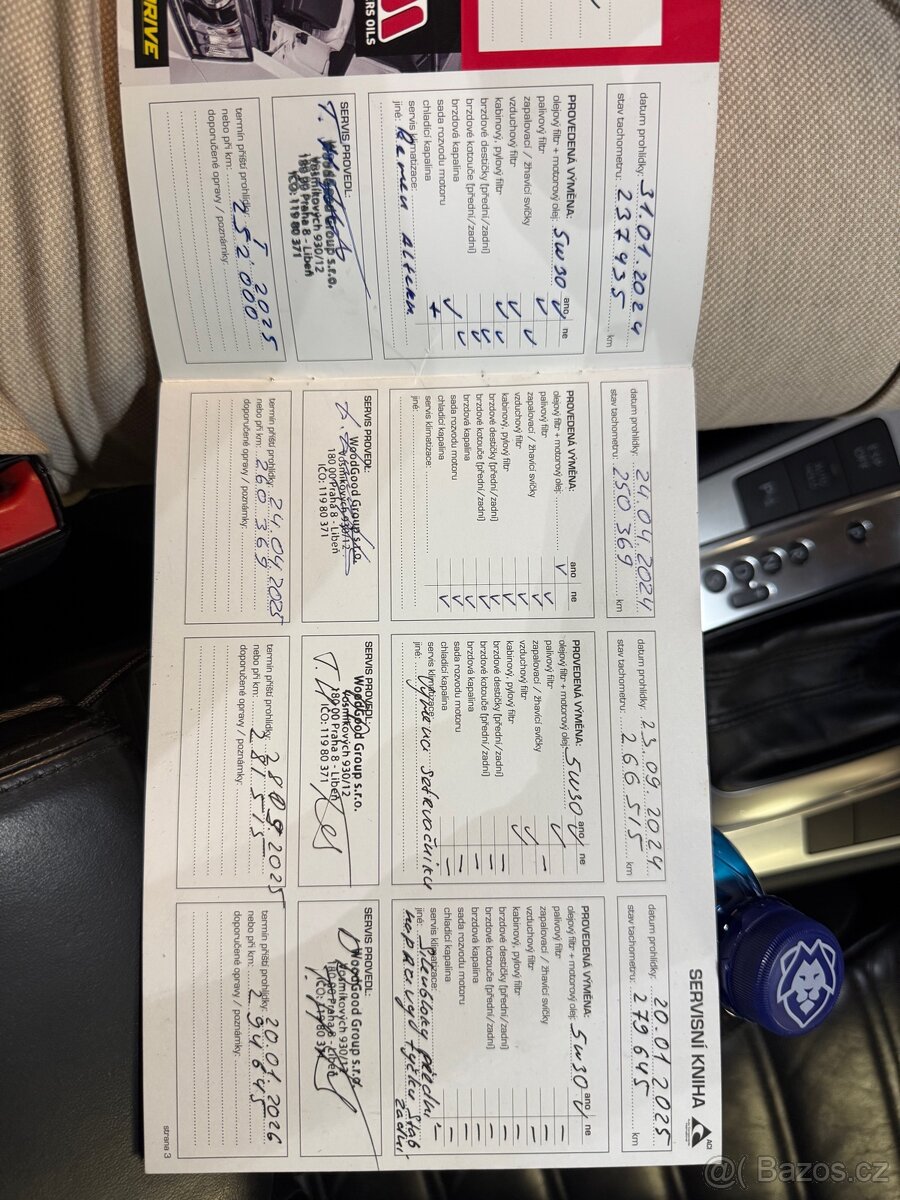 DRIVE
RS OILS
SERVISNÍ KNIHA
ACI
datum prohlídky: 31.01.2024
stav tachometru: 237435 km
PROVEDENÁ VÝMĚNA: ano ne
olejový filtr + motorový olej: 5W30 ✓
palivový filtr
zapalovací / žhavící svíčky
vzduchový filtr
kabinový, pylový filtr
brzdové destičky [přední/zadní]
brzdové kotouče [přední/zadní]
brzdová kapalina
sada rozvodu motoru
chladící kapalina
servis klimatizace:
jiné: Remen
SERVIS PROVEDL:
WoodGood Group s.r.o.
Kosmíkových 930/12
180 00 Praha 8 - Libeň
IČO: 119 80 371
termín příští prohlídky: 2025
nebo při km: 252 000
doporučené opravy / poznámky:
datum prohlídky: 24.04.2024
stav tachometru: 250 369 km
PROVEDENÁ VÝMĚNA: ano ne
olejový filtr + motorový olej: ✓
palivový filtr ✓
zapalovací / žhavící svíčky ✓
vzduchový filtr ✓
kabinový, pylový filtr ✓
brzdové destičky [přední/zadní] ✓
brzdové kotouče [přední/zadní] ✓
brzdová kapalina ✓
sada rozvodu motoru ✓
chladící kapalina ✓
servis klimatizace:
jiné:
SERVIS PROVEDL:
WoodGood Group s.r.o.
Kosmíkových 930/12
180 00 Praha 8 - Libeň
IČO: 119 80 371
termín příští prohlídky: 24.04.2025
nebo při km: 260 369
doporučené opravy / poznámky:
datum prohlídky: 23.09.2024
stav tachometru: 266 515 km
PROVEDENÁ VÝMĚNA: ano ne
olejový filtr + motorový olej: 5W30 ✓
palivový filtr
zapalovací / žhavící svíčky
vzduchový filtr
kabinový, pylový filtr
brzdové destičky [přední/zadní]
brzdové kotouče [přední/zadní]
brzdová kapalina
sada rozvodu motoru
chladící kapalina
servis klimatizace:
jiné: setrvačníku
SERVIS PROVEDL:
WoodGood Group s.r.o.
Kosmíkových 930/12
180 00 Praha 8 - Libeň
IČO: 119 80 371
termín příští prohlídky: 2025
nebo při km: 281515
doporučené opravy / poznámky:
datum prohlídky: 20.01.2025
stav tachometru: 279 645 km
PROVEDENÁ VÝMĚNA: ano ne
olejový filtr + motorový olej: 5W30 ✓
palivový filtr
zapalovací / žhavící svíčky
vzduchový filtr
kabinový, pylový filtr
brzdové destičky [přední/zadní]
brzdové kotouče [přední/zadní]
brzdová kapalina
sada rozvodu motoru
chladící kapalina
servis klimatizace:
jiné: přední
tyčky stab.
zadní
SERVIS PROVEDL:
WoodGood Group s.r.o.
Kosmíkových 930/12
180 00 Praha 8 - Libeň
IČO: 119 80 371
termín příští prohlídky: 20.01.2026
nebo při km: 294645
doporučené opravy / poznámky:
strana 3
@( Bazos.cz